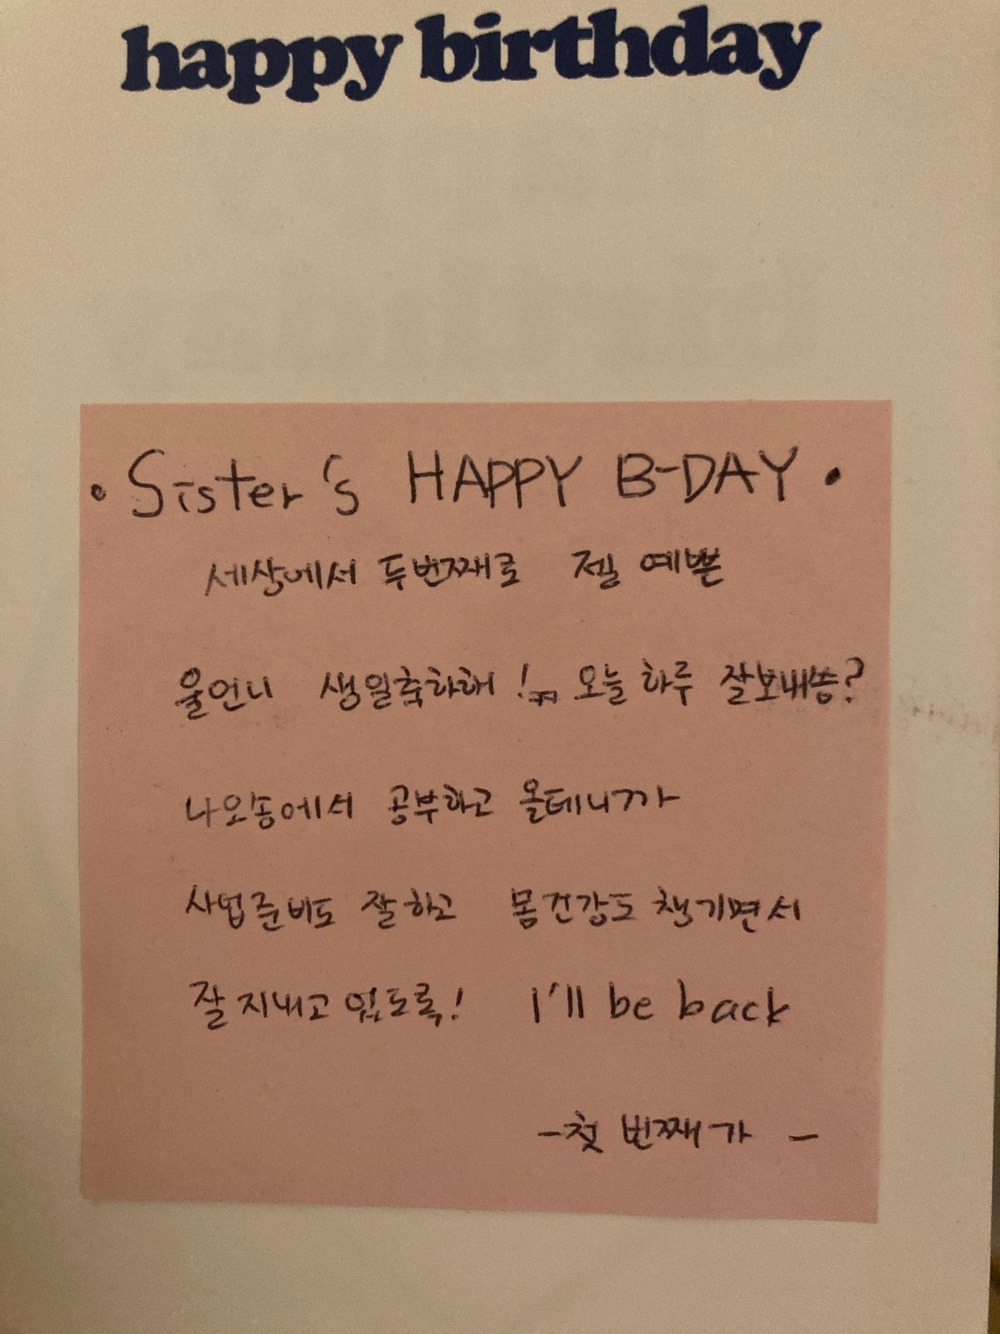 happy birthday
• Sister's HAPPY B-DAY •
세상에서 두번째로 젤 예쁜
울언니 생일축하해!ㅋㅋ 오늘 하루 잘보내쏭?
나오송에서 공부하고 올테니까
사업준비도 잘하고 몸건강도 챙기면서
잘지내고 있도록! I'll be back
-첫번째가-